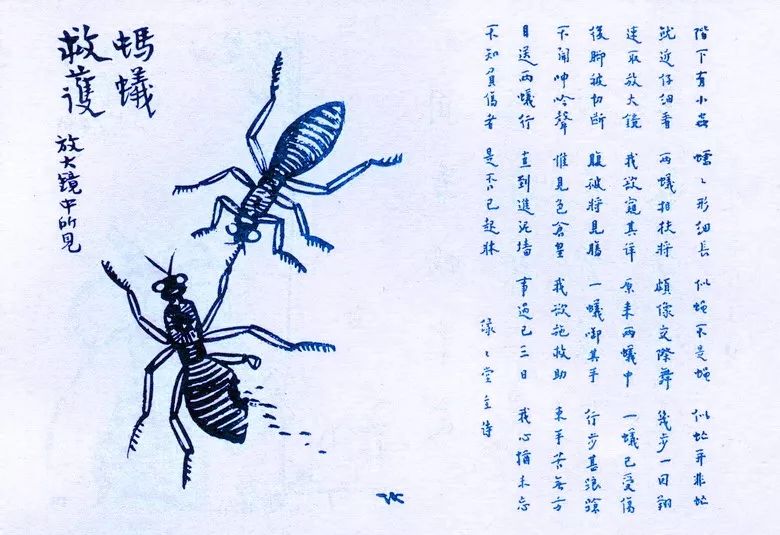 螞蟻
救護
放大鏡中所見
階下有小蟲 蠕々形細長 似蠅不是蠅 似虻并非虻
就近仔細看 兩蟻相扶將 頗像交際舞 幾步一回翔
速取放大鏡 我欲窺其詳 原来兩蟻中 一蟻已受傷
後脚被切斷 腹破將見腸 一蟻啣其手 行步甚踉蹌
不聞呻吟聲 惟見色倉皇 我欲施救助 束手苦無方
目送兩蟻行 直到進泥墙 事過已三日 我心猶未忘
不知負傷者 是否已起牀
緣々堂主詩
TK